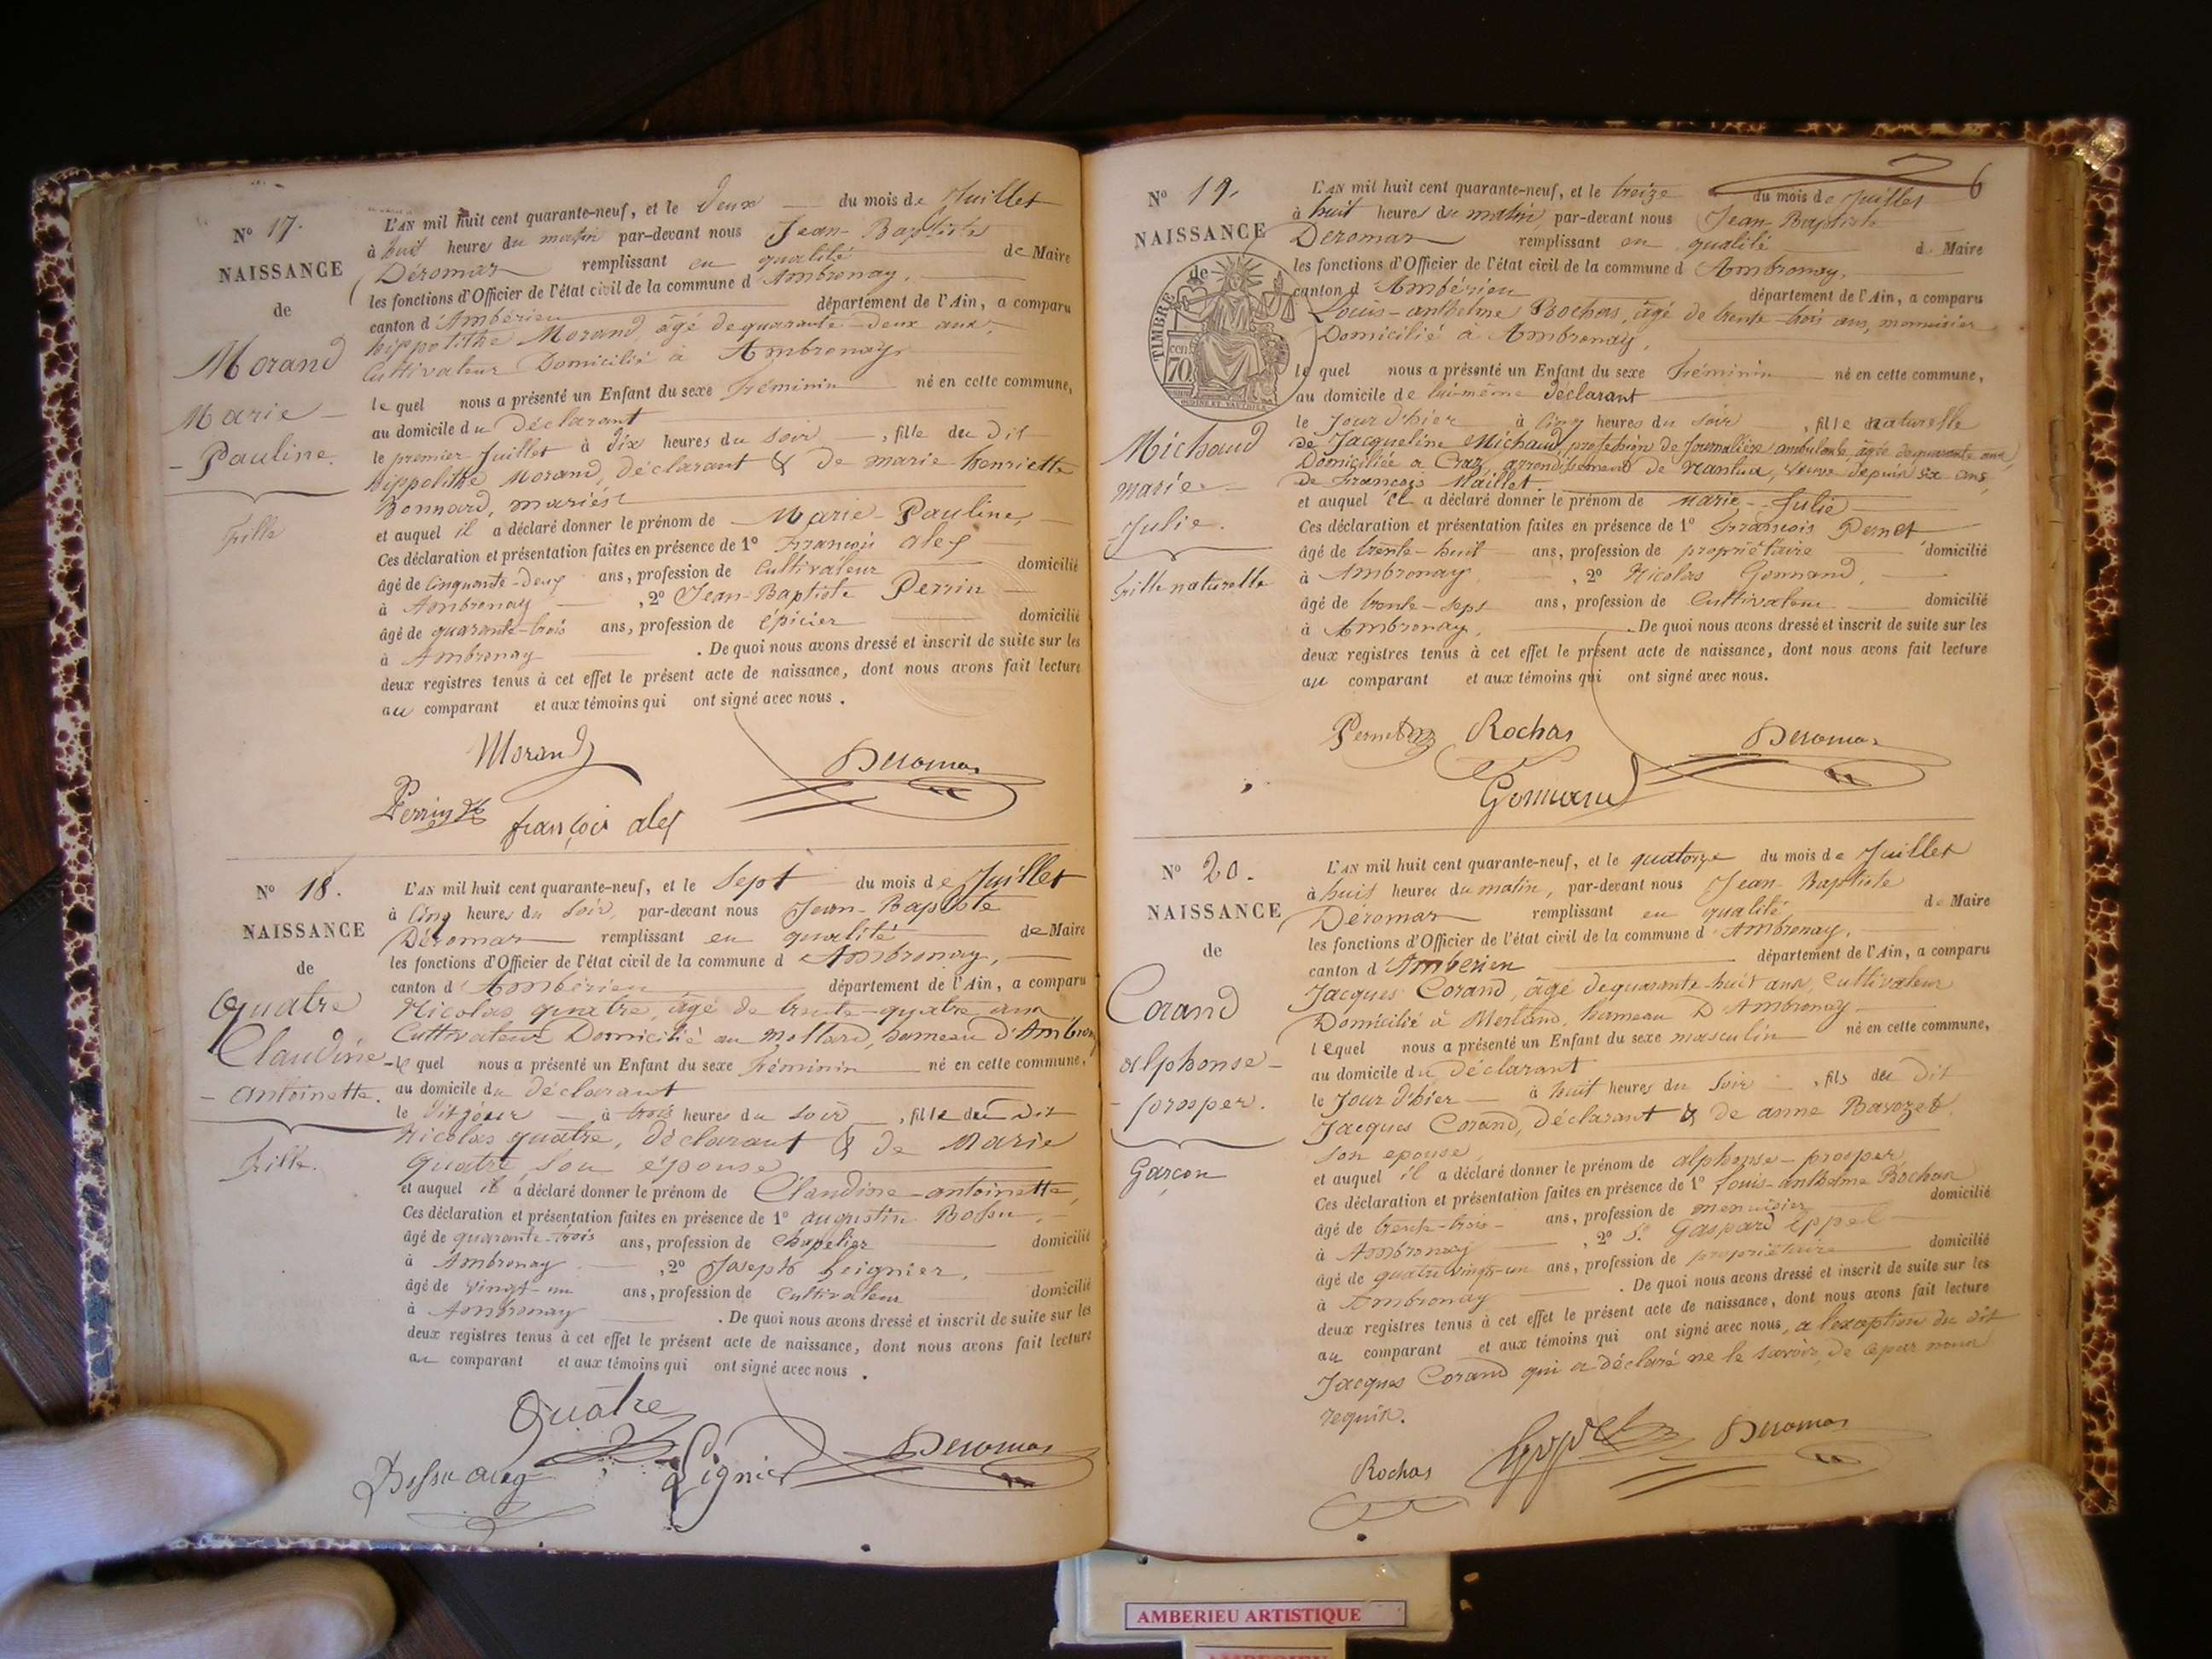 N° 17.
NAISSANCE
de
Morand
Marie
- Pauline.
fille
L'AN mil huit cent quarante-neuf, et le deux du mois de Juillet
à huit heures du matin par-devant nous Jean-Baptiste
Déromas remplissant en qualité de Maire
les fonctions d'Officier de l'état civil de la commune d'Ambronay,
canton d'Ambérieu département de l'Ain, a comparu
hippolithe Morand, âgé de quarante-deux ans,
Cultivateur Domicilié à Ambronay
lequel nous a présenté un Enfant du sexe Féminin né en cette commune,
au domicile du déclarant
le premier Juillet à dix heures du soir, fille du dit
hippolithe Morand, déclarant & de marie henriette
Bonnard, mariés
et auquel il a déclaré donner le prénom de Marie-Pauline,
Ces déclaration et présentation faites en présence de 1° François alex
âgé de Cinquante-deux ans, profession de Cultivateur domicilié
à Ambronay, 2° Jean-Baptiste Perrin
âgé de quarante-trois ans, profession de épicier domicilié
à Ambronay. De quoi nous avons dressé et inscrit de suite sur les
deux registres tenus à cet effet le présent acte de naissance, dont nous avons fait lecture
au comparant et aux témoins qui ont signé avec nous.
Morand
Deromas
Perrin
françois alex
N° 18.
NAISSANCE
de
Quatre
Claudine
- antoinette.
fille.
L'AN mil huit cent quarante-neuf, et le Sept du mois de Juillet
à Cinq heures du Soir, par-devant nous Jean-Baptiste
Déromas remplissant en qualité de Maire
les fonctions d'Officier de l'état civil de la commune d'Ambronay,
canton d'Ambérieu département de l'Ain, a comparu
Nicolas quatre, âgé de trente-quatre ans
Cultivateur Domicilié au Mollard, hameau d'Ambronay
lequel nous a présenté un Enfant du sexe Féminin né en cette commune,
au domicile du déclarant
le dit jour à trois heures du soir, fille du dit
Nicolas quatre, déclarant & de Marie
Quatre son épouse
et auquel il a déclaré donner le prénom de Claudine-antoinette,
Ces déclaration et présentation faites en présence de 1° augustin Bossu,
âgé de quarante-trois ans, profession de Chapelier domicilié
à Ambronay, 2° Joseph Leignier,
âgé de Vingt-un ans, profession de Cultivateur domicilié
à Ambronay. De quoi nous avons dressé et inscrit de suite sur les
deux registres tenus à cet effet le présent acte de naissance, dont nous avons fait lecture
au comparant et aux témoins qui ont signé avec nous.
Quatre
Deromas
Bossu aug
Lignier
6
N° 19.
NAISSANCE
de
TIMBRE
cen.
70
Michaud
marie
- Julie.
fille naturelle
L'AN mil huit cent quarante-neuf, et le treize du mois de Juillet
à huit heures du matin, par-devant nous Jean-Baptiste
Deromas remplissant en qualité de Maire
les fonctions d'Officier de l'état civil de la commune d'Ambronay,
canton d'Ambérieu département de l'Ain, a comparu
Louis-anthelme Rochas, âgé de trente-trois ans, menuisier
Domicilié à Ambronay,
lequel nous a présenté un Enfant du sexe Féminin né en cette commune,
au domicile de lui-même déclarant
le Jour d'hier à cinq heures du soir, fille naturelle
de Jacqueline Michaud, profession de Journalière ambulante, âgée de quarante ans,
Domiciliée a Craz, arrondissement de nantua, Veuve depuis six ans,
de François Maillet
et auquel il a déclaré donner le prénom de marie-Julie
Ces déclaration et présentation faites en présence de 1° François Pernet
âgé de trente-huit ans, profession de propriétaire domicilié
à Ambronay, 2° Nicolas Gonnand,
âgé de trente-sept ans, profession de Cultivateur domicilié
à Ambronay, De quoi nous avons dressé et inscrit de suite sur les
deux registres tenus à cet effet le présent acte de naissance, dont nous avons fait lecture
au comparant et aux témoins qui ont signé avec nous.
Pernet Rochas Deromas
Gonnand
N° 20.
NAISSANCE
de
Corand
alphonse-
- prosper.
Garçon
L'AN mil huit cent quarante-neuf, et le quatorze du mois de Juillet
à huit heures du matin, par-devant nous Jean-Baptiste
Déromas remplissant en qualité de Maire
les fonctions d'Officier de l'état civil de la commune d'Ambronay,
canton d'Ambérieu département de l'Ain, a comparu
Jacques Corand, âgé de quarante-huit ans, Cultivateur
Domicilié à Merland, hameau D'Ambronay
lequel nous a présenté un Enfant du sexe masculin né en cette commune,
au domicile du déclarant
le Jour d'hier à huit heures du Soir, fils du dit
Jacques Corand, déclarant & de anne Bavozet,
son epouse,
et auquel il a déclaré donner le prénom de alphonse-prosper
Ces déclaration et présentation faites en présence de 1° Louis-anthelme Rochas
âgé de trente-trois ans, profession de menuisier domicilié
à Ambronay, 2° Sr Gaspard Eppel
âgé de quatre vingt-un ans, profession de propriétaire domicilié
à Ambronay. De quoi nous avons dressé et inscrit de suite sur les
deux registres tenus à cet effet le présent acte de naissance, dont nous avons fait lecture
au comparant et aux témoins qui ont signé avec nous, a l'exception du dit
Jacques Corand qui a déclaré ne le savoir, de ce par nous
requis.
Rochas Deromas
AMBERIEU ARTISTIQUE